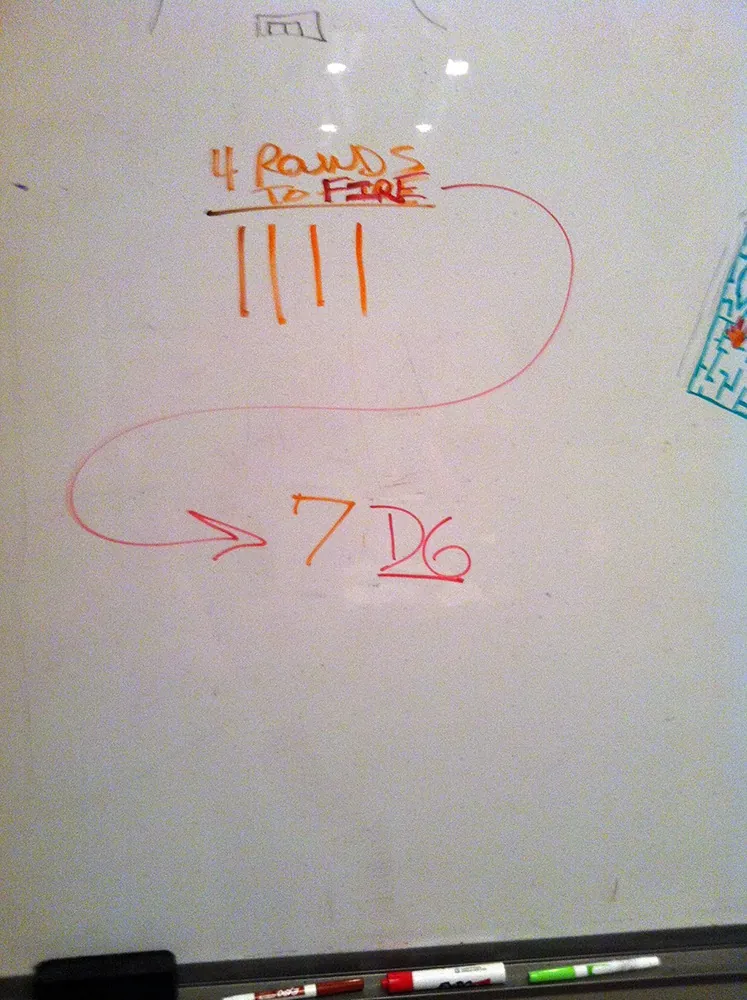 4 ROUNDS
TO FIRE
7 D6
EXPO